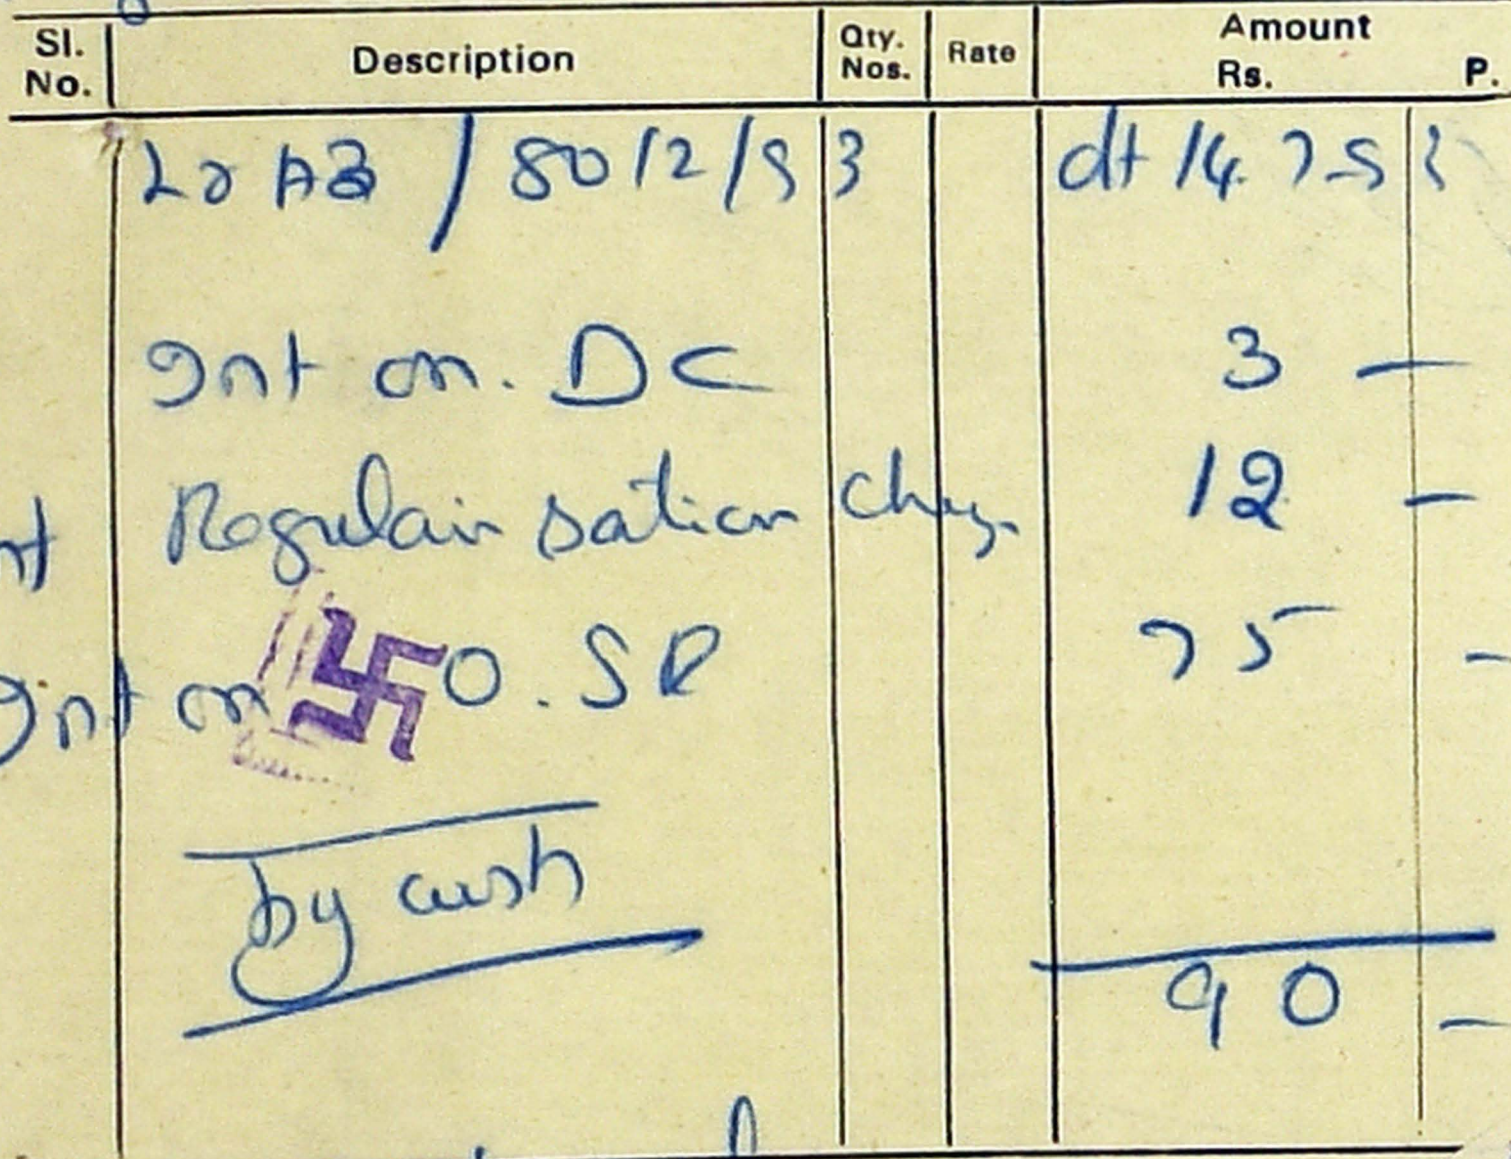 Sl. No. Description Qty. Nos. Rate Amount Rs. P.
Lr AB / 8012/93 dt 14.7.93
Int on. DC 3 —
Regulairisation Chags. 12 —
Int on O.SR 75 —
by cash
90 —